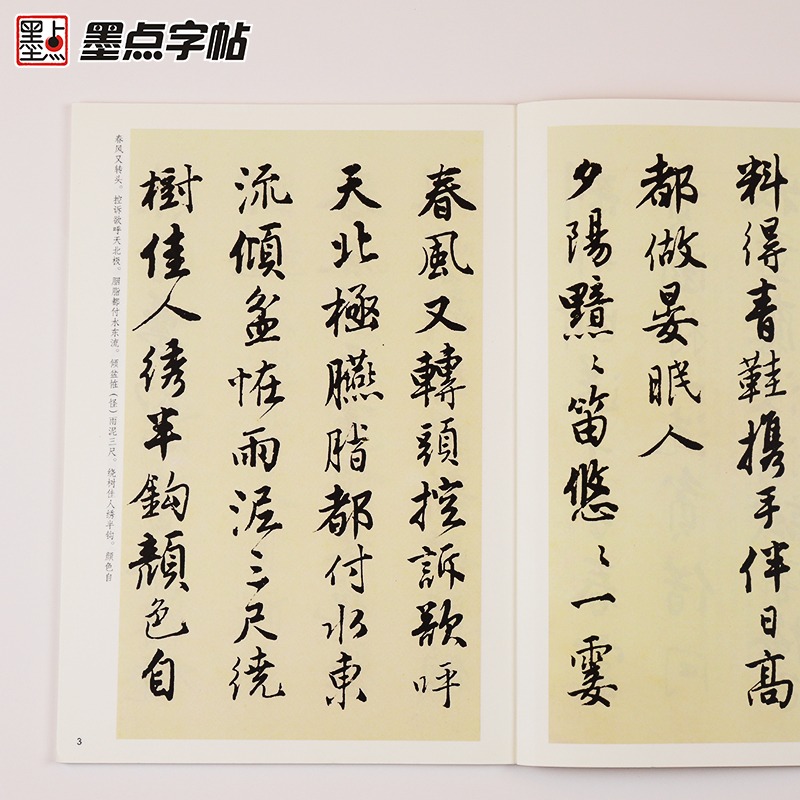 墨点
墨点字帖
料得青鞋携手伴日高
都做晏眠人
夕陽黯〻笛悠〻一霎
春風又轉頭控訴欲呼
天北極臙脂都付水東
流傾盆恠雨泥三尺繞
樹佳人綉半鈎顏色自
春风又转头。控诉欲呼天北极。胭脂都付水东流。倾盆恠（怪）雨泥三尺。绕树佳人绣半钩。颜色自
3